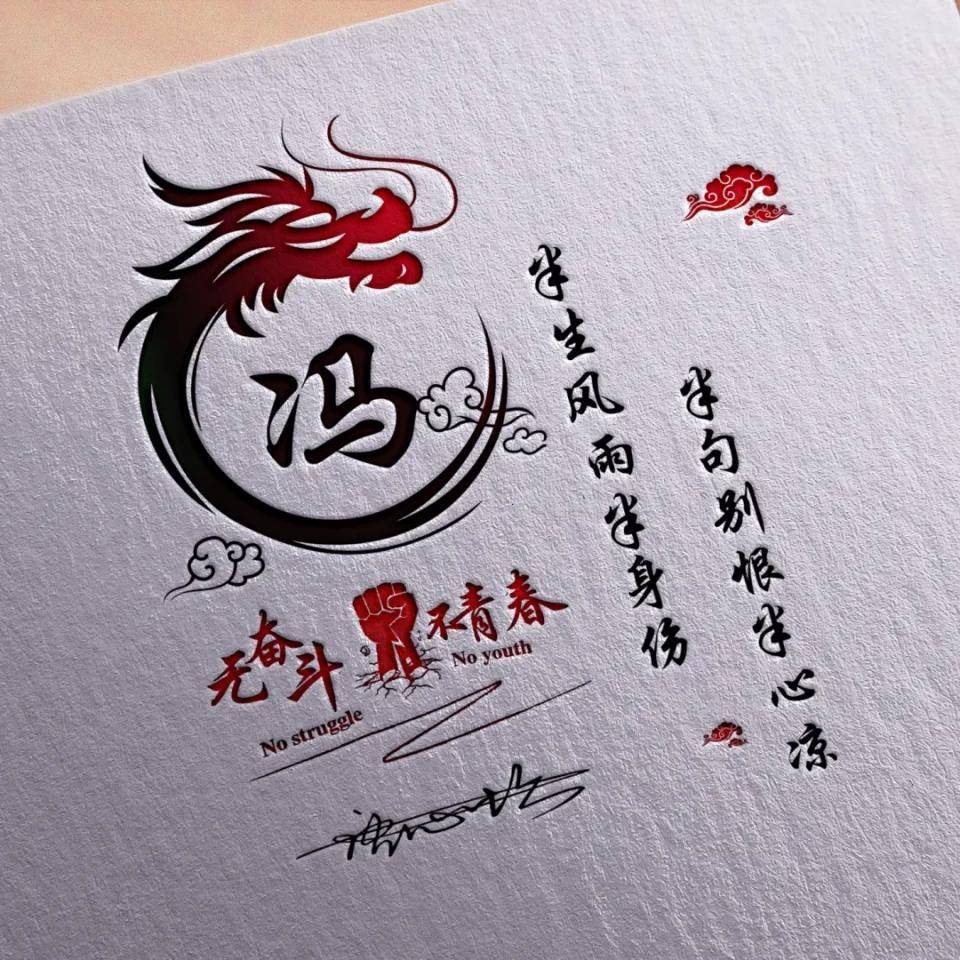 冯
无奋斗 不青春
No struggle No youth
半生风雨半身伤
半句别恨半心凉